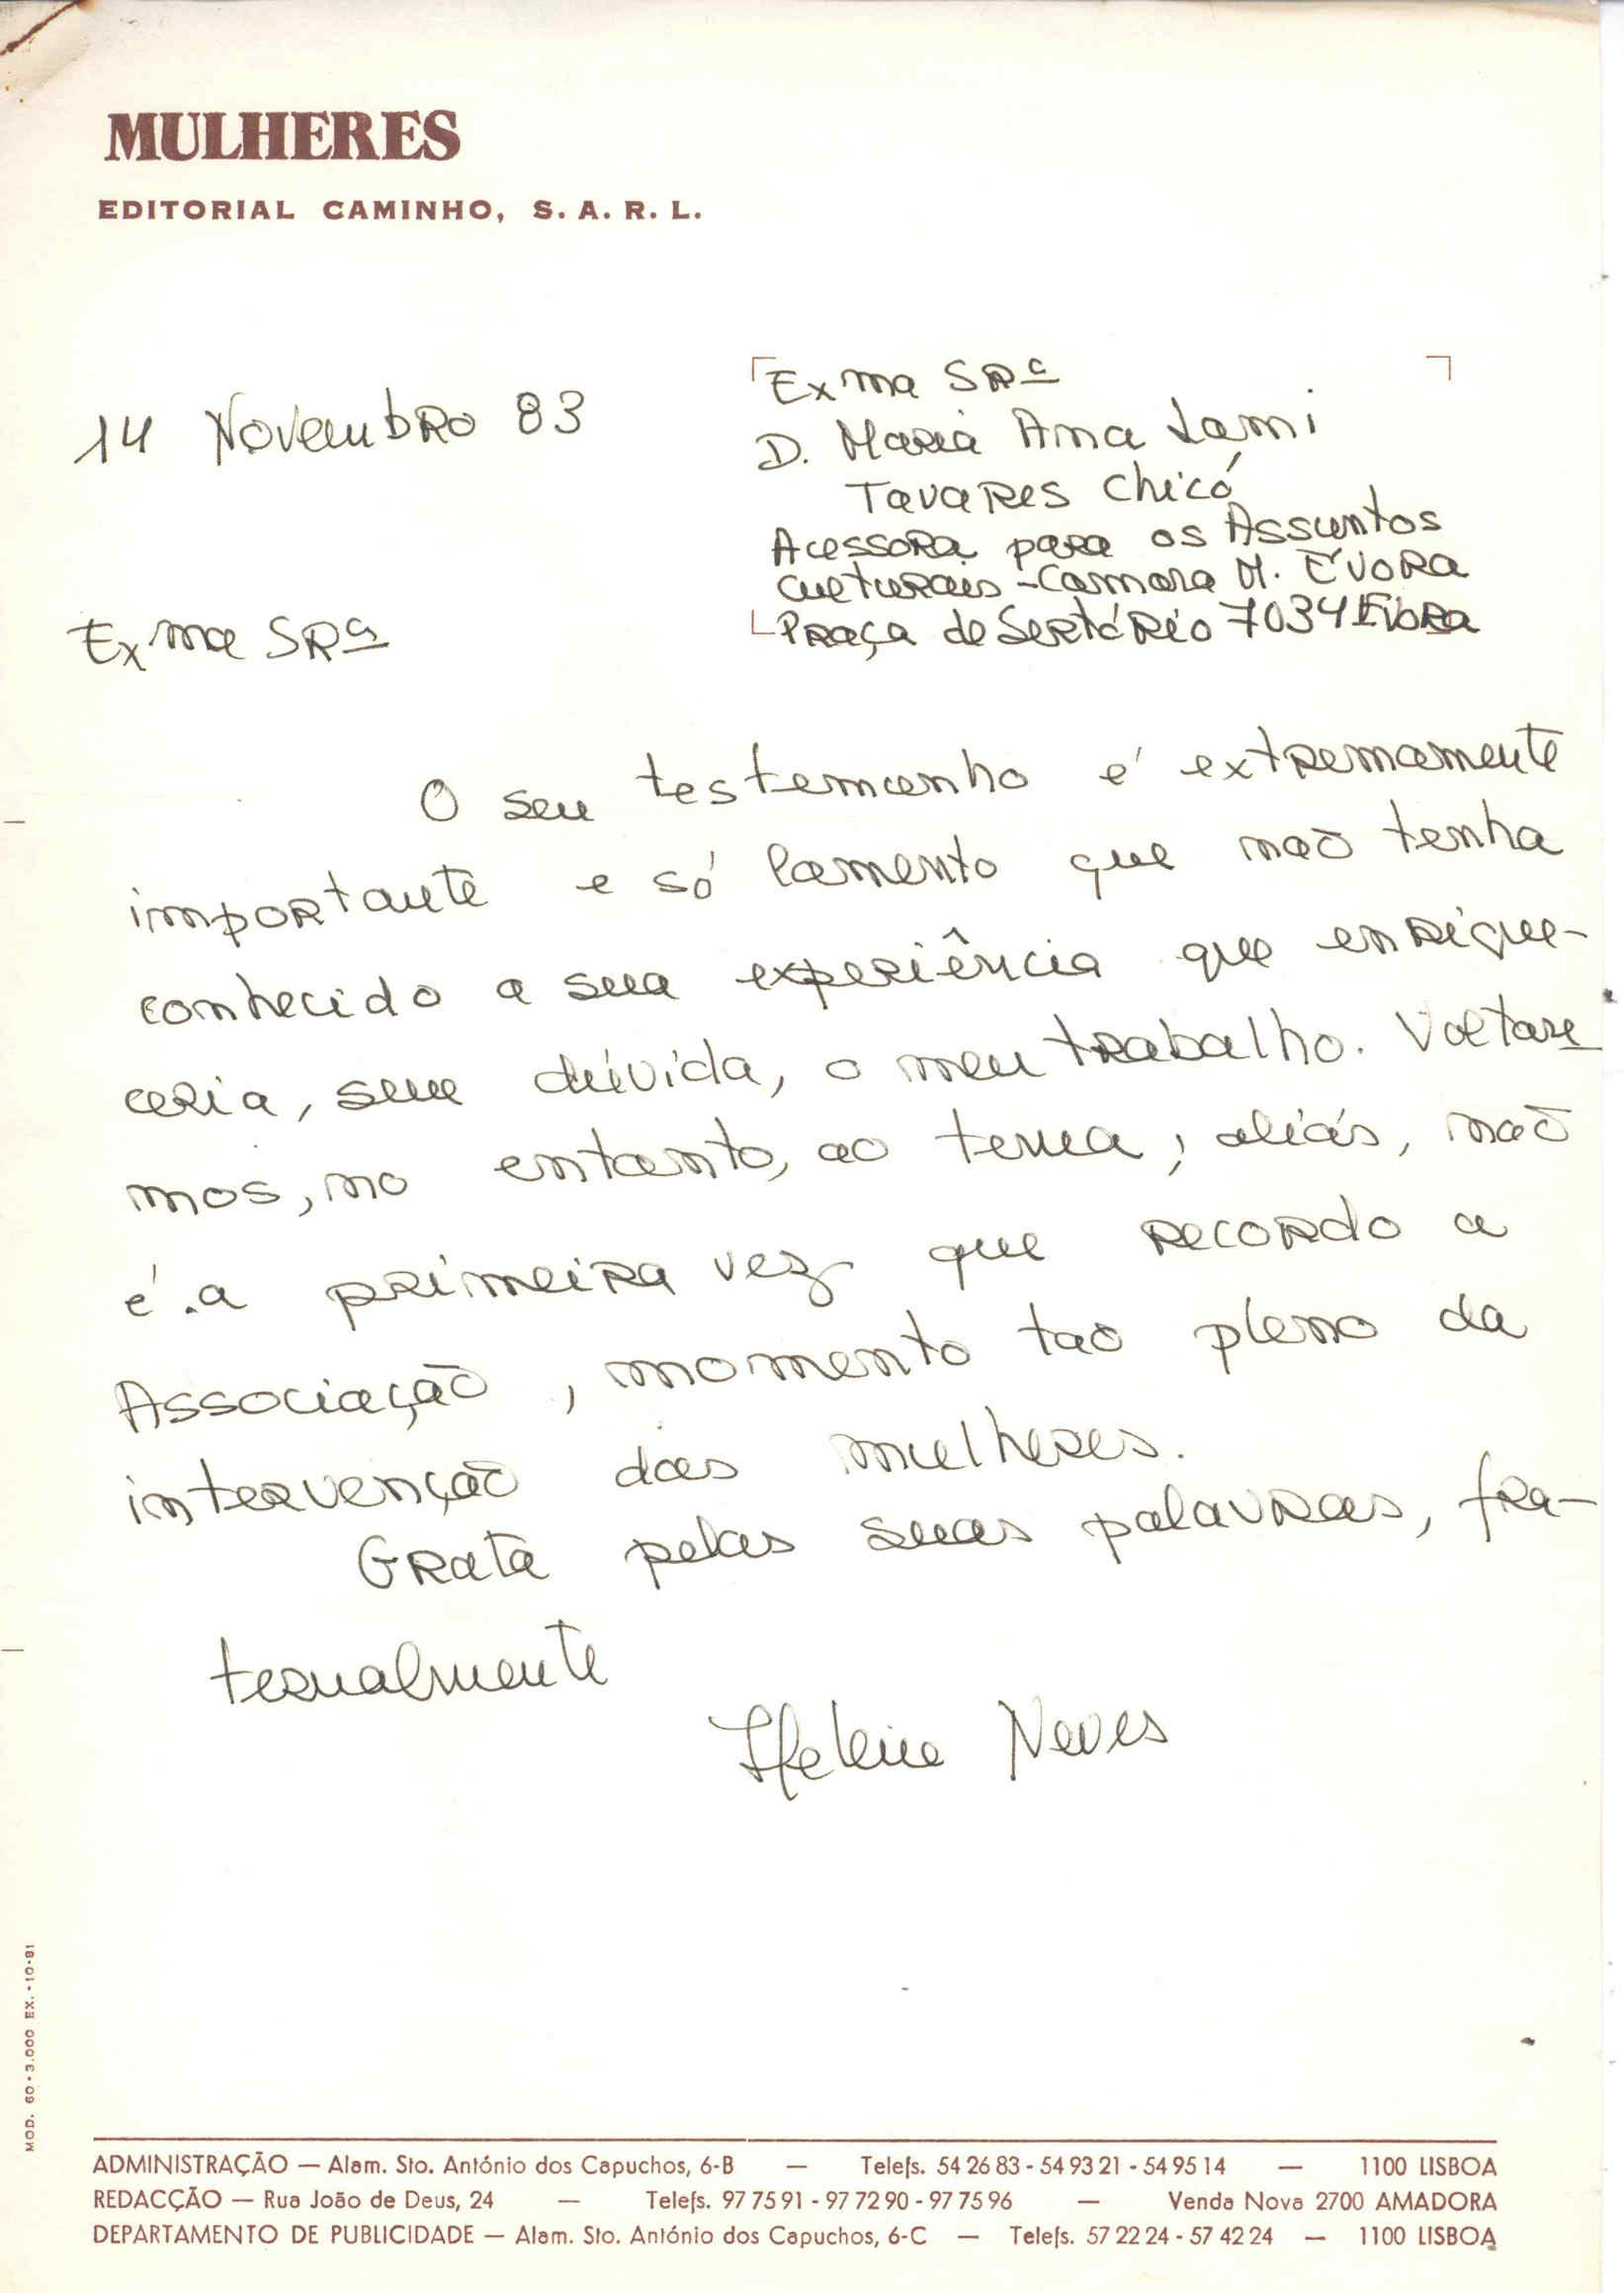 MULHERES
EDITORIAL CAMINHO, S. A. R. L.
14 Novembro 83
Exma SRª
D. Maria Ana Lami
Tavares Chicó
Acessora para os Assuntos
Culturais - Camara M. Évora
Praça de Sertório 7034 Évora
Exma SRª
O seu testemunho é extremamente
importante e só lamento que não tenha
conhecido a sua experiência que enrique-
ceria, sem dúvida, o meu trabalho. Voltare
mos, no entanto, ao tema; aliás, não
é a primeira vez que recordo a
Associação, momento tão pleno da
intervenção das mulheres.
Grata pelas suas palavras, fra-
ternalmente
Helena Neves
MOD. 60 - 3.000 EX. - 10-81
ADMINISTRAÇÃO — Alam. Sto. António dos Capuchos, 6-B — Telefs. 54 26 83 - 54 93 21 - 54 95 14 — 1100 LISBOA
REDACÇÃO — Rua João de Deus, 24 — Telefs. 97 75 91 - 97 72 90 - 97 75 96 — Venda Nova 2700 AMADORA
DEPARTAMENTO DE PUBLICIDADE — Alam. Sto. António dos Capuchos, 6-C — Telefs. 57 22 24 - 57 42 24 — 1100 LISBOA